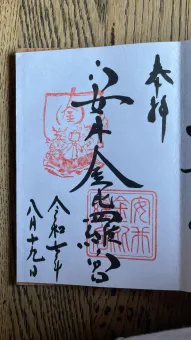 奉拝
安井金比羅宮
令和七年
八月十九日